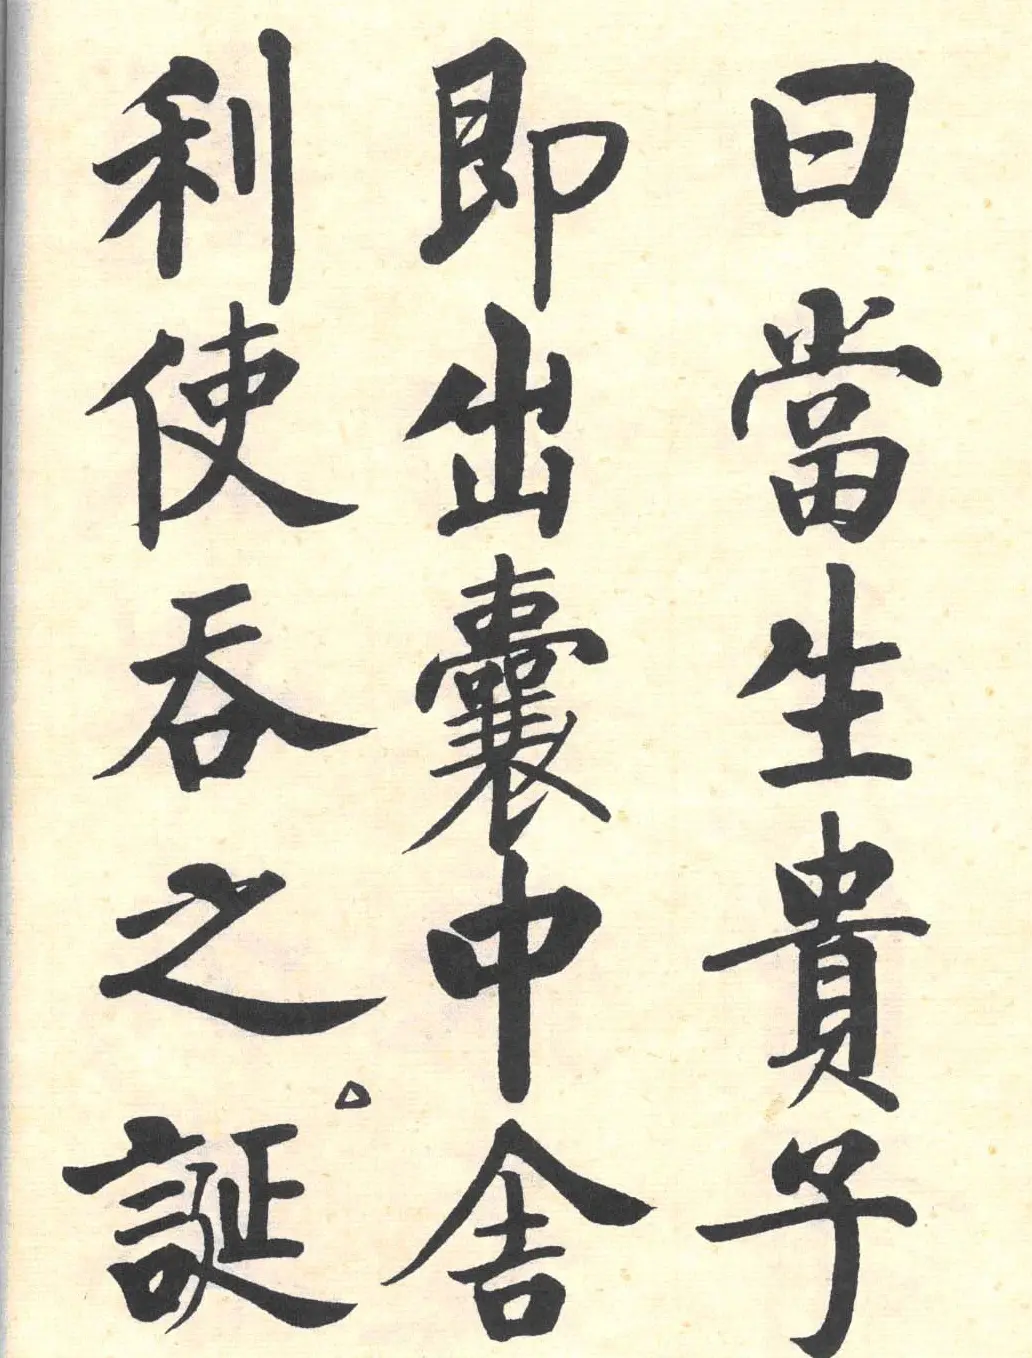 曰當生貴子
即出囊中舍
利使吞之誕